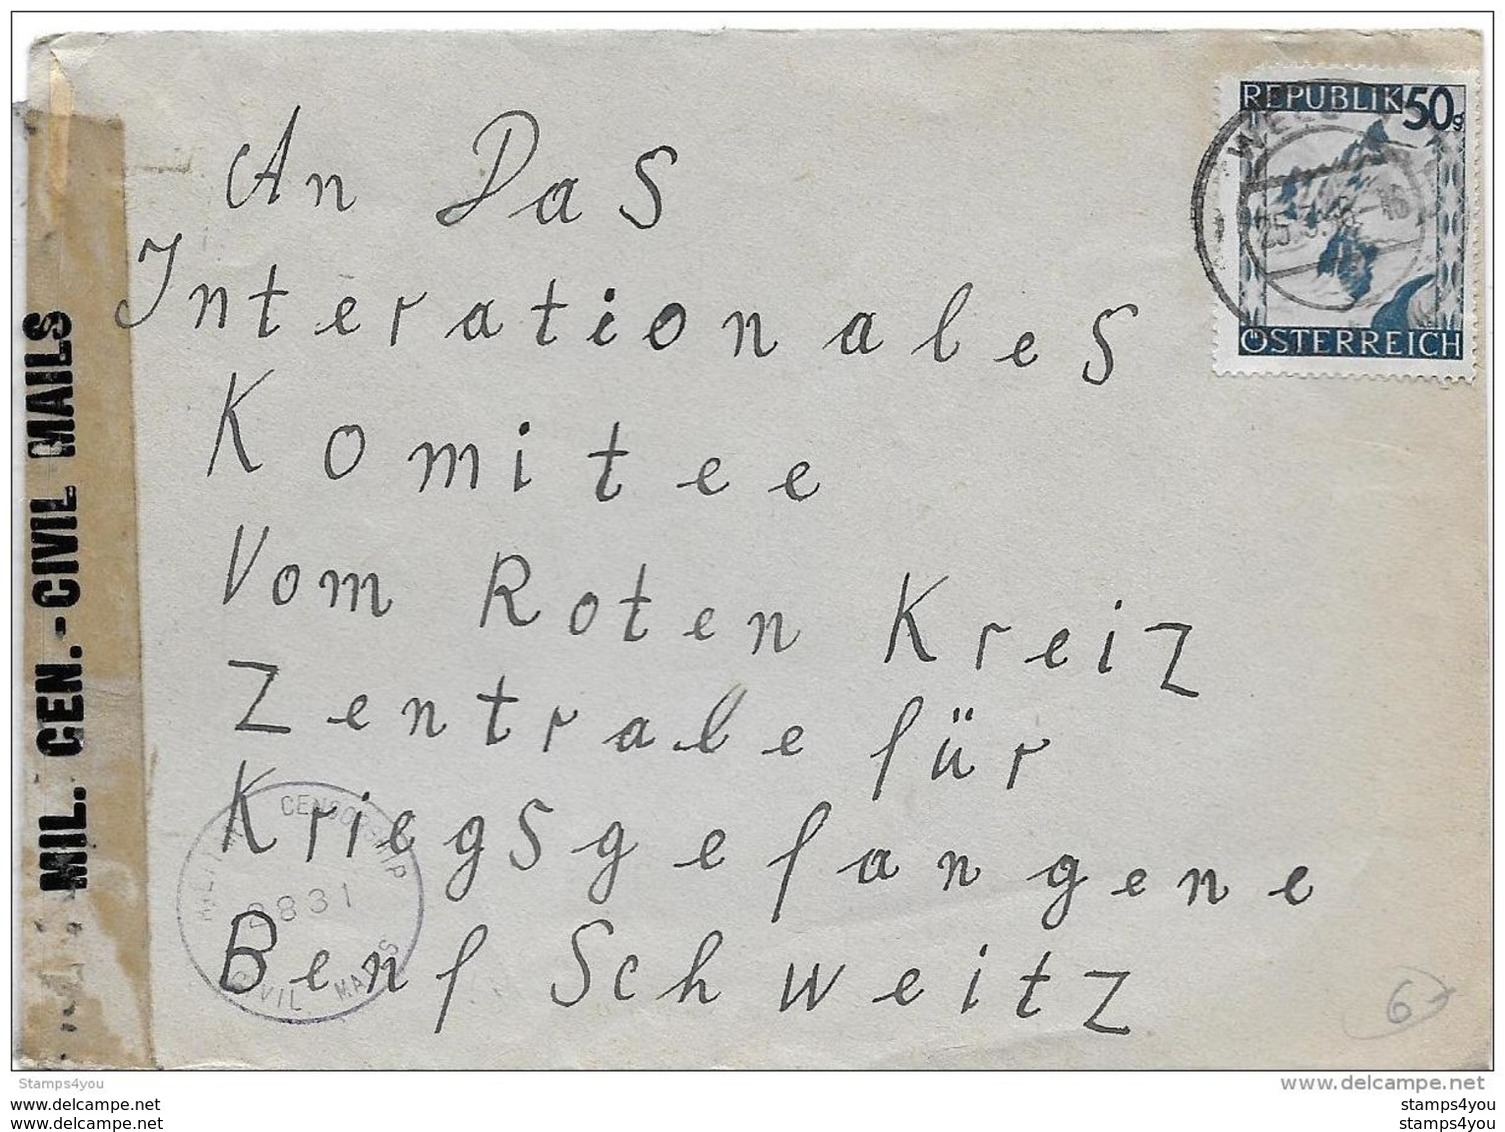 An Das
Interationales
Komitee
Vom Roten Kreiz
Zentrale für
Kriegsgefangene
Benf Schweitz
REPUBLIK 50g
ÖSTERREICH
WELS
MIL. CEN.-CIVIL MAILS
CENSORSHIP
2831
CIVIL MAILS
6
Stamps4you
www.delcampe.net
www.delcampe.net
www.delcampe.net
stamps4you
stamps4you